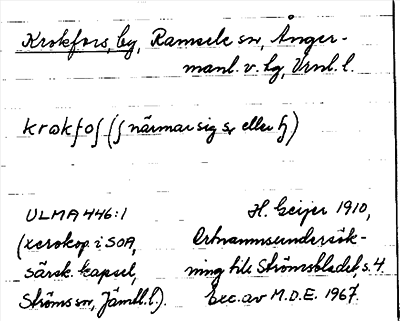 Krokfors, by, Ramsele sn, Ånger-
manl. v. hg, Vrnl. l.
krokfoʃ (ʃ närmar sig s̨ eller ɧ)
ULMA 446:1
(xerokop. i SOA,
särsk. kapsel,
Ströms sn, Jämtl. l.).
H. Geijer 1910,
Ortnamnsundersök-
ning till Strömsbladet, s. 4.
Exc. av M.D.E. 1967.